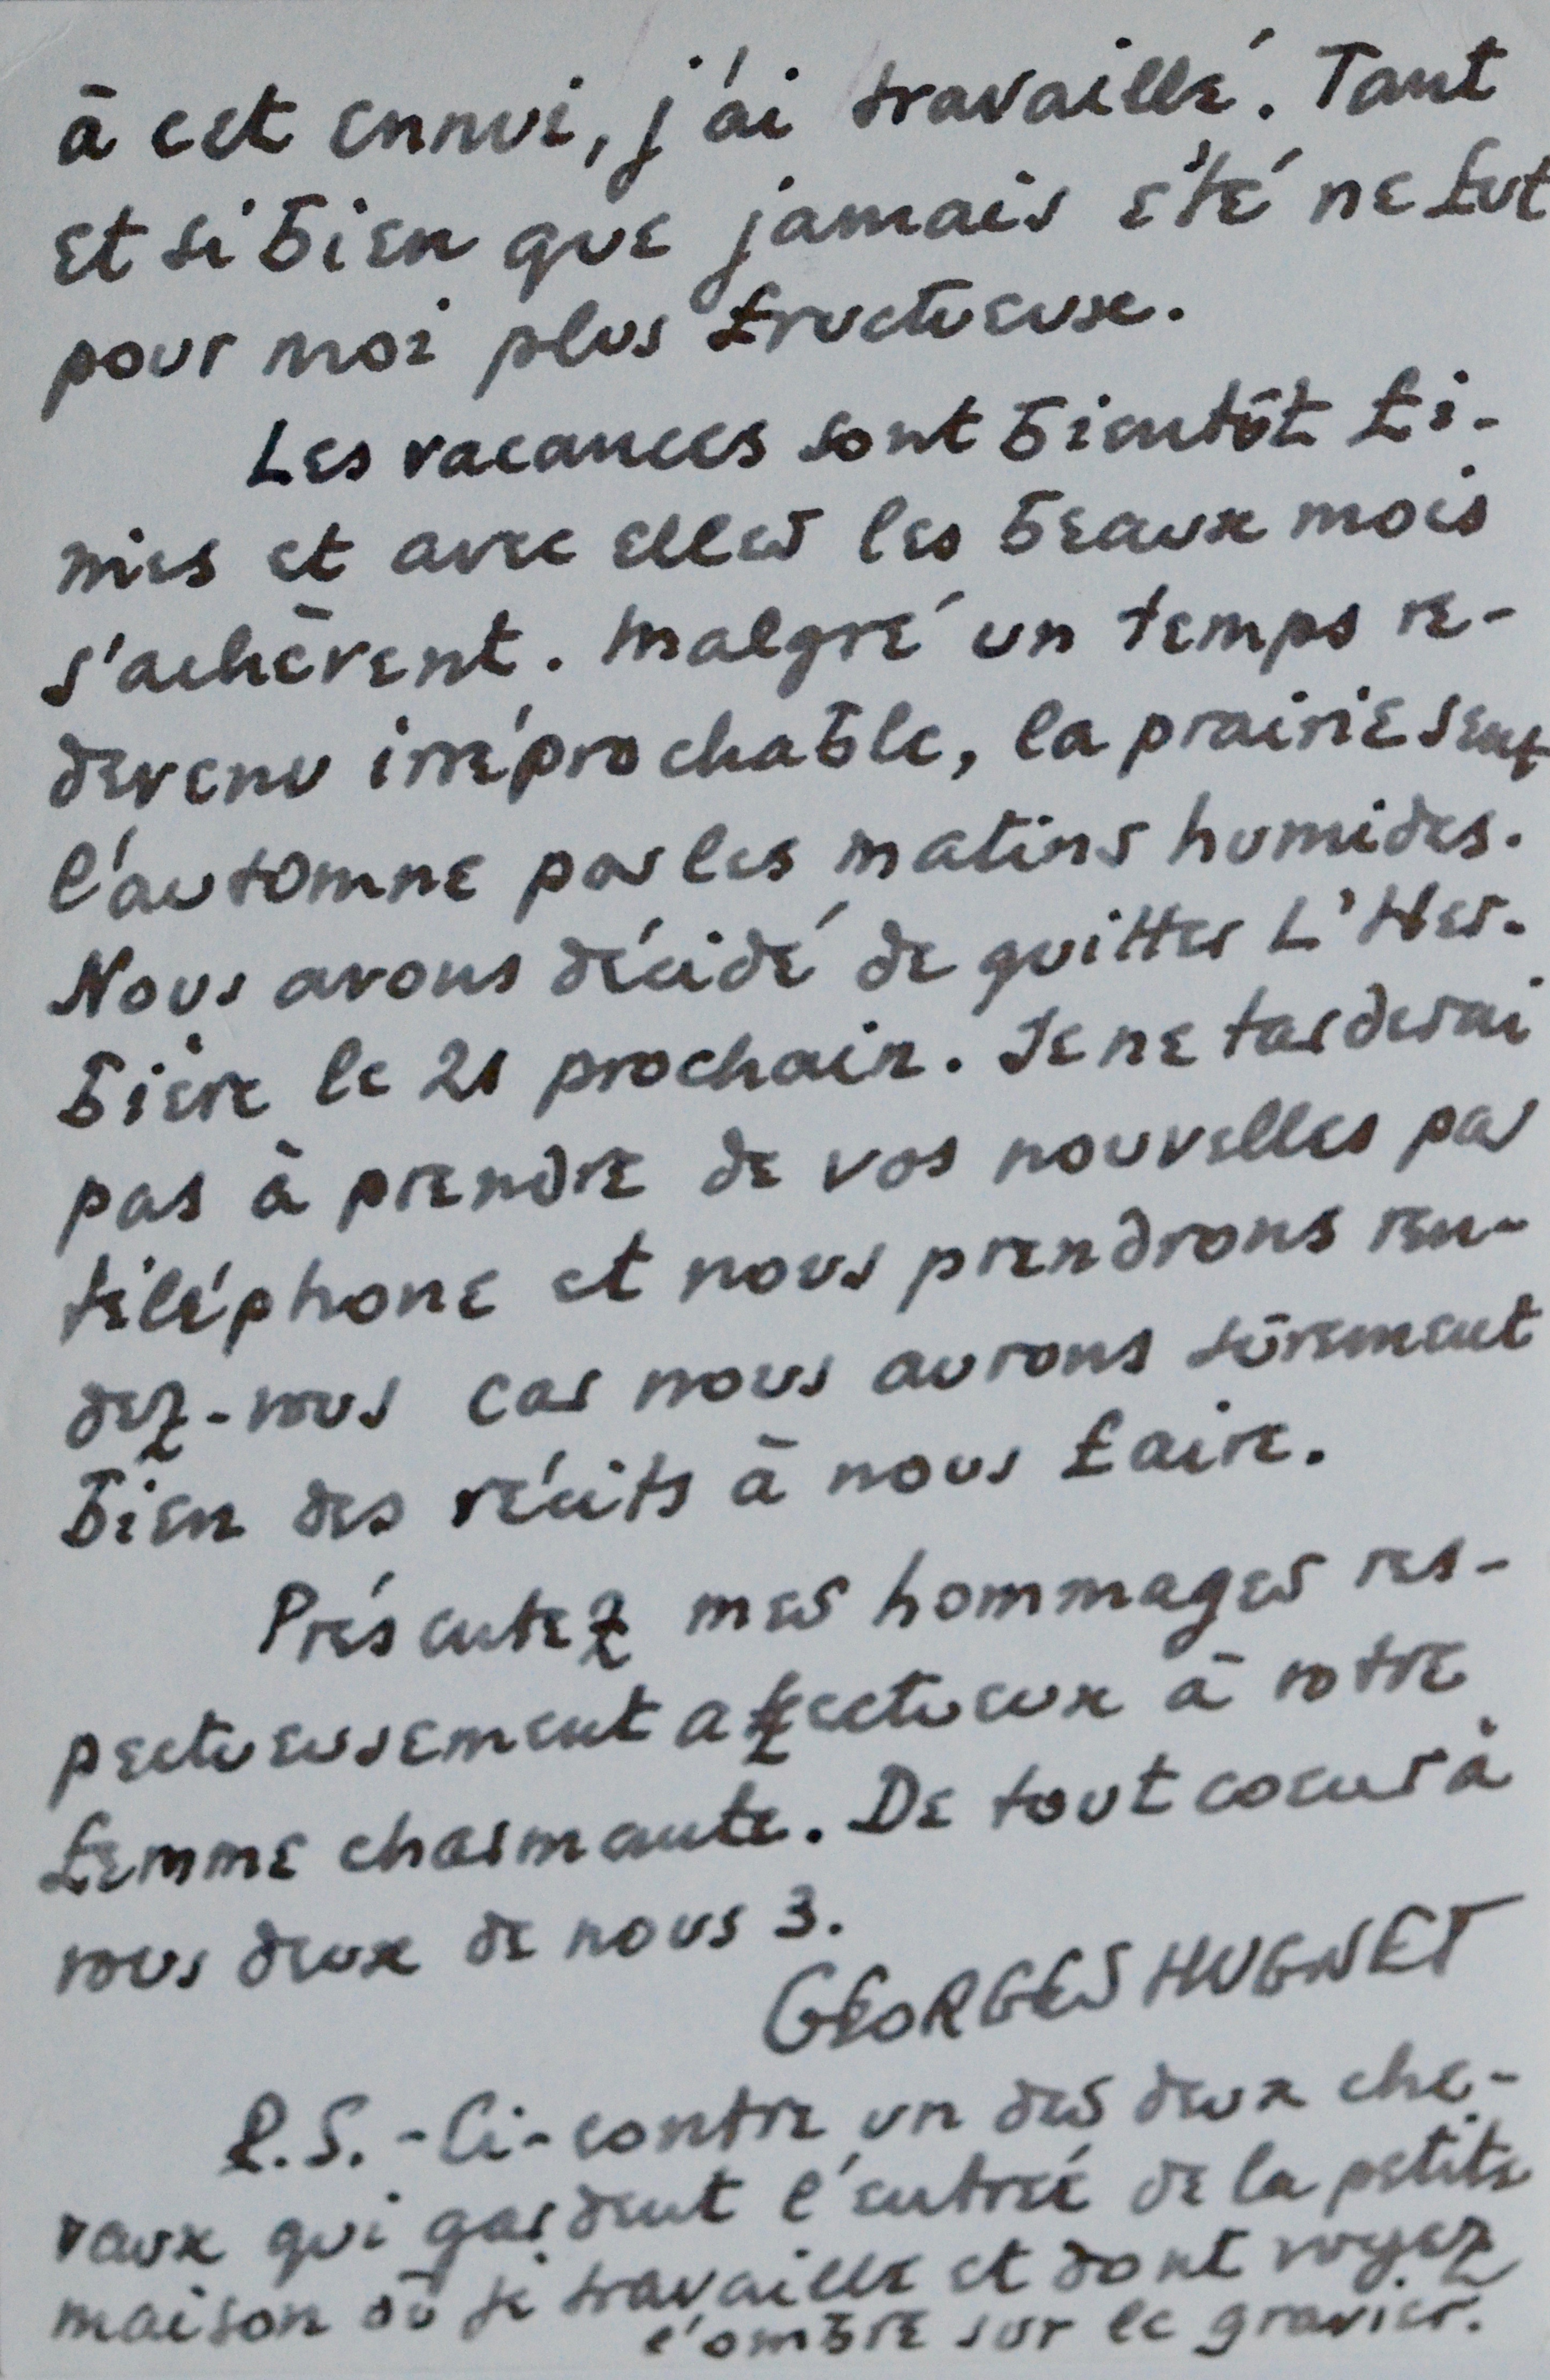 à cet ennui, j'ai travaillé. Tant
et si bien que jamais été ne fut
pour moi plus fructueuse.
Les vacances sont bientôt fi-
nies et avec elles les beaux mois
s'achèvent. Malgré un temps re-
devenu irréprochable, la prairie sent
l'automne par les matins humides.
Nous avons décidé de quitter L'Her-
bière le 21 prochain. Je ne tarderai
pas à prendre de vos nouvelles par
téléphone et nous prendrons ren-
dez-vous car nous aurons sûrement
bien des récits à nous faire.
Présentez mes hommages res-
pectueusement affectueux à votre
femme charmante. De tout coeur à
vous deux de nous 3.
GEORGES HUGNET
P.S. - Ci-contre un des deux che-
vaux qui gardent l'entrée de la petite
maison où je travaille et dont voyez
l'ombre sur le gravier.